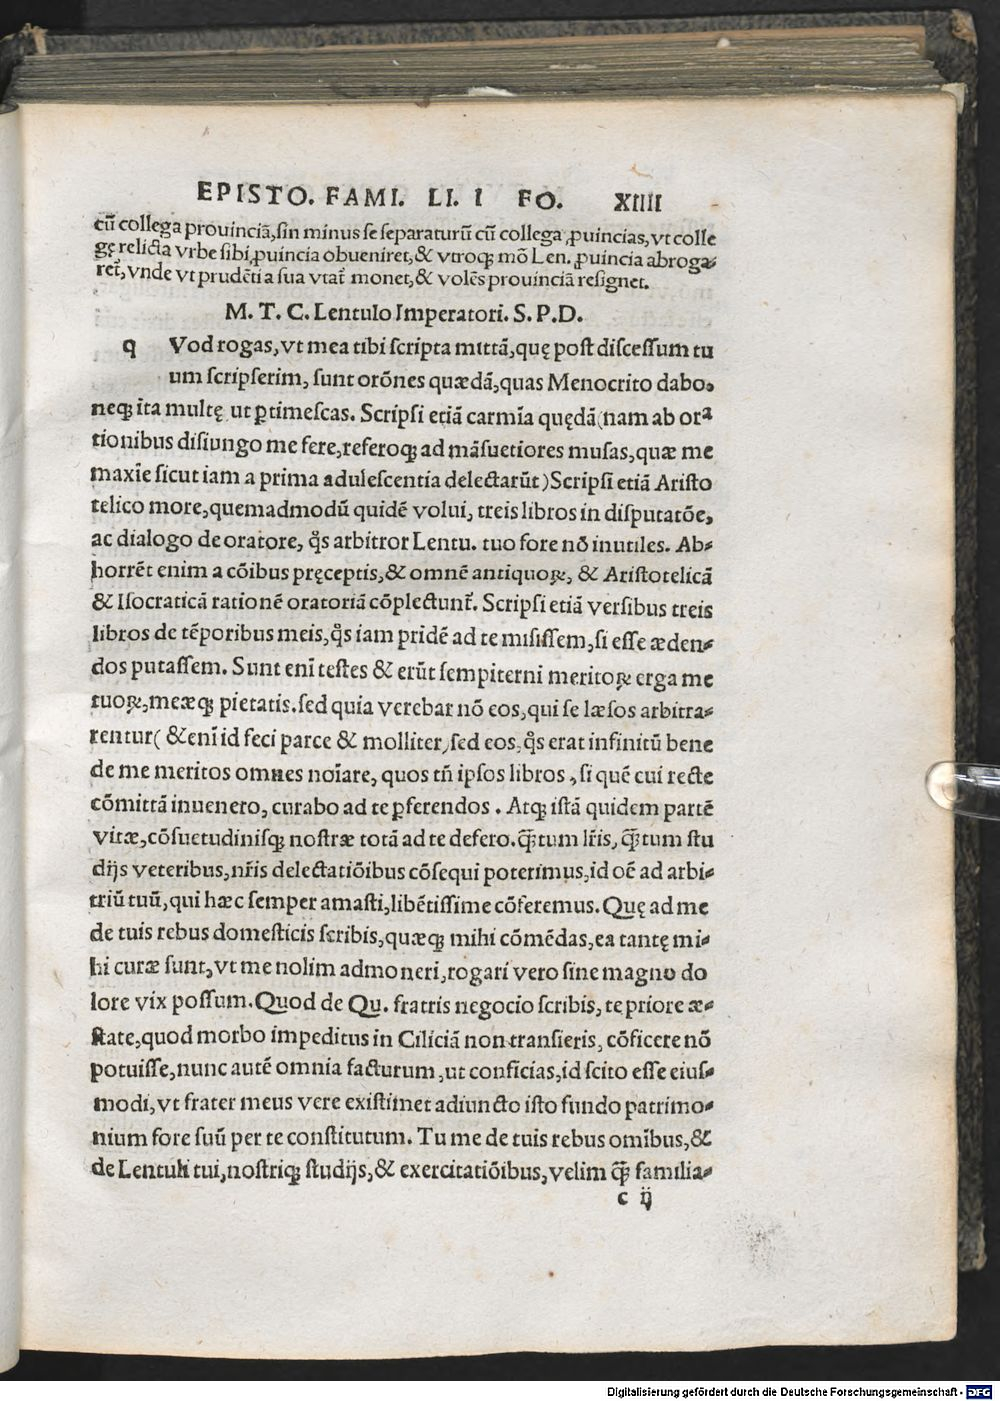 EPISTO. FAMI. LI. I FO. XIIII
cū collega prouinciā,sin minus se separaturū cū collega ꝓuincias, vt colle
gę relicta vrbe sibi ꝓuincia obueniret,& vtroqꝫ mō Len. ꝓuincia abroga-
ret̄, vnde vt prudēti a sua vtat̄ monet,& volēs prouinciā resignet.
M. T. C. Lentulo Imperatori. S. P. D.
q Vod rogas, vt mea tibi scripta mittā,quę post discessum tu
um scripserim, sunt orōnes quædā,quas Menocrito dabo,
neqꝫ ita multę ut ꝑtimescas. Scripsi etiā carmīa quędā(nam ab orᵃ
tionibus disiungo me fere,referoqꝫ ad māsuetiores musas,quæ me
maxīe sicut iam a prima adulescentia delectarūt)Scripsi etiā Aristo
telico more,quemadmodū quidē volui, treis libros in disputatōe,
ac dialogo de oratore, q̊s arbitror Lentu. tuo fore nō inutiles. Ab-
horrēt enim a cōibus pręceptis,& omnē antiquoꝝ, & Aristotelicā
& Isocraticā rationē oratoriā cōplectunt̄. Scripsi etiā versibus treis
libros de tēporibus meis,q̊s iam pridē ad te misissem,si esse æden-
dos putassem. Sunt enī testes & erūt sempiterni meritoꝝ erga me
tuoꝝ,meæqꝫ pietatis.sed quia verebar nō eos,qui se læsos arbitra-
rentur( &enī id feci parce & molliter)sed eos,q̊s erat infinitū bene
de me meritos omnes noīare, quos tn̄ ipsos libros , si quē cui recte
cōmittā inuenero, curabo ad te ꝑferendos . Atqꝫ istā quidem partē
vitæ,cōsuetudinisqꝫ nostræ totā ad te defero.q̄tum lr̄is, q̄tum stu
dijs veteribus,nr̄is delectatiōibus cōsequi poterimus,id oē ad arbi-
triū tuū,qui hæc semper amasti,libētissime cōferemus. Quę ad me
de tuis rebus domesticis scribis,quæqꝫ mihi cōmēdas,ea tantę mi-
hi curæ sunt,vt me nolim admoneri,rogari vero sine magno do
lore vix possum.Quod de Qu. fratris negocio scribis, te priore æ-
state,quod morbo impeditus in Ciliciā non transieris, cōficere nō
potuisse,nunc autē omnia facturum,ut conficias,id scito esse eius-
modi,vt frater meus vere existimet adiuncto isto fundo patrimo-
nium fore suū per te constitutum. Tu me de tuis rebus omībus,&
de Lentuli tui,nostriqꝫ studijs,& exercitatiōibus,velim q̄ familia-
c ij
Digitalisierung gefördert durch die Deutsche Forschungsgemeinschaft - DFG